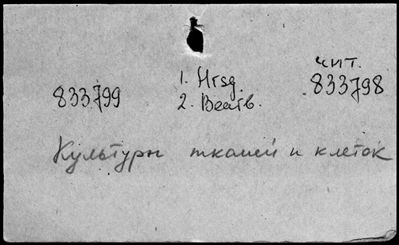 чит.
833799 1. Hrsg. 833798
2. Bearb.
Культуры тканей и клеток